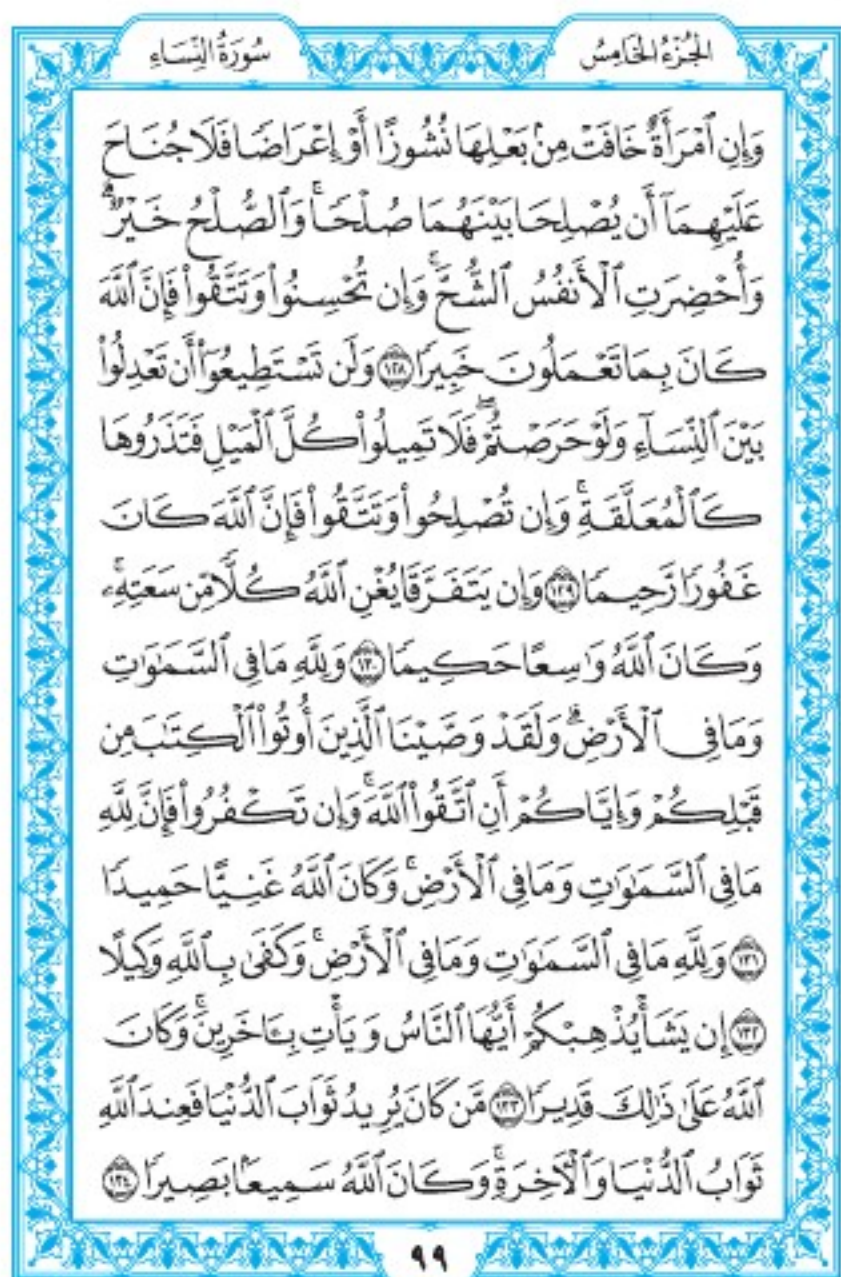 الجُزْءُ الخَامِسُ سُورَةُ النِّسَاءِ
وَإِنِ ٱمْرَأَةٌ خَافَتْ مِنۢ بَعْلِهَا نُشُوزًا أَوْ إِعْرَاضًا فَلَا جُنَاحَ
عَلَيْهِمَآ أَن يُصْلِحَا بَيْنَهُمَا صُلْحًاۚ وَٱلصُّلْحُ خَيْرٌۗ
وَأُحْضِرَتِ ٱلْأَنفُسُ ٱلشُّحَّۚ وَإِن تُحْسِنُوا۟ وَتَتَّقُوا۟ فَإِنَّ ٱللَّهَ
كَانَ بِمَا تَعْمَلُونَ خَبِيرًا ١٢٨ وَلَن تَسْتَطِيعُوٓا۟ أَن تَعْدِلُوا۟
بَيْنَ ٱلنِّسَآءِ وَلَوْ حَرَصْتُمْۖ فَلَا تَمِيلُوا۟ كُلَّ ٱلْمَيْلِ فَتَذَرُوهَا
كَٱلْمُعَلَّقَةِۚ وَإِن تُصْلِحُوا۟ وَتَتَّقُوا۟ فَإِنَّ ٱللَّهَ كَانَ
غَفُورًا رَّحِيمًا ١٢٩ وَإِن يَتَفَرَّقَا يُغْنِ ٱللَّهُ كُلًّا مِّن سَعَتِهِۦۚ
وَكَانَ ٱللَّهُ وَٰسِعًا حَكِيمًا ١٣٠ وَلِلَّهِ مَا فِى ٱلسَّمَٰوَٰتِ
وَمَا فِى ٱلْأَرْضِۗ وَلَقَدْ وَصَّيْنَا ٱلَّذِينَ أُوتُوا۟ ٱلْكِتَٰبَ مِن
قَبْلِكُمْ وَإِيَّاكُمْ أَنِ ٱتَّقُوا۟ ٱللَّهَۚ وَإِن تَكْفُرُوا۟ فَإِنَّ لِلَّهِ
مَا فِى ٱلسَّمَٰوَٰتِ وَمَا فِى ٱلْأَرْضِۚ وَكَانَ ٱللَّهُ غَنِيًّا حَمِيدًا
١٣١ وَلِلَّهِ مَا فِى ٱلسَّمَٰوَٰتِ وَمَا فِى ٱلْأَرْضِۚ وَكَفَىٰ بِٱللَّهِ وَكِيلًا
١٣٢ إِن يَشَأْ يُذْهِبْكُمْ أَيُّهَا ٱلنَّاسُ وَيَأْتِ بِـَٔاخَرِينَۚ وَكَانَ
ٱللَّهُ عَلَىٰ ذَٰلِكَ قَدِيرًا ١٣٣ مَّن كَانَ يُرِيدُ ثَوَابَ ٱلدُّنْيَا فَعِندَ ٱللَّهِ
ثَوَابُ ٱلدُّنْيَا وَٱلْـَٔاخِرَةِۚ وَكَانَ ٱللَّهُ سَمِيعًۢا بَصِيرًا ١٣٤
٩٩